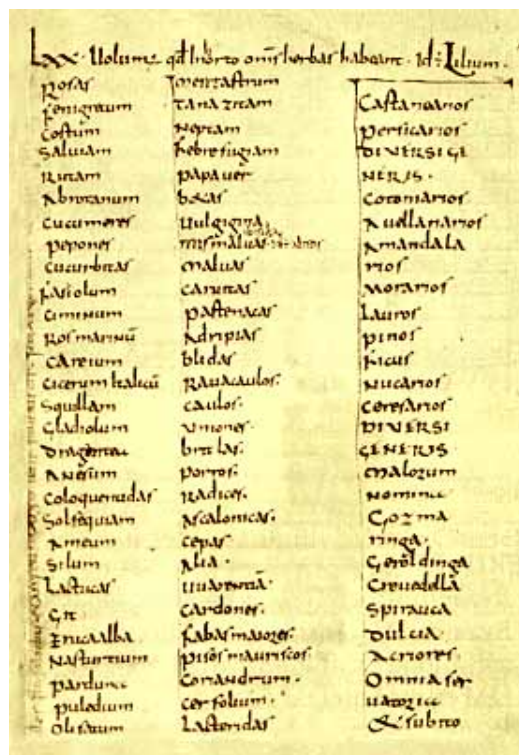 Lxx. Uolumus qd̄ In horto omnes herbas habeant. Id ē Lilium.
Rosas
Fenigrecum
Costum
Saluiam
Rutam
Abrotanum
Cucumeres
Pepones
Cucurbitas
Fasiolum
Ciminum
Ros marinū
Careium
Cicerum Italicū
Squillam
Gladiolum
Dragantea
Anesum
Coloquentidas
Solsequiam
Ameum
Silum
Lactucas
Git
Eruca alba
Nasturtium
Parduna
Puledium
Olisatum
Mentastrum
Tanazitam
Neptam
Febrefugiam
Papauer
Betas
Uulgigina
Mismaluas
Maluas
Caruitas
Pastenacas
Adripias
Blidas
Rauacaulos.
Caulos.
Uniones.
Britlas.
Porros.
Radices.
Ascalonicas.
Cepas.
Alia.
Uuarentiā.
Cardones.
Fabas maiores.
Pisos mauriscos.
Coriandrum.
Cerfolium.
Lacteridas
Castanearios
Persicarios
DIVERSI GE
NERIS.
Cotoniarios
Auellanarios
Amandala
rios
Morarios
Lauros
Pinos
Ficus
Nucarios
Ceresarios
DIVERSI
GENERIS.
Malorum
Nomina
Gozma
ringa.
Geroldinga
Creuedella
Spirauca
Dulcia.
Acriores
Omnia ser
uatoria
& subito